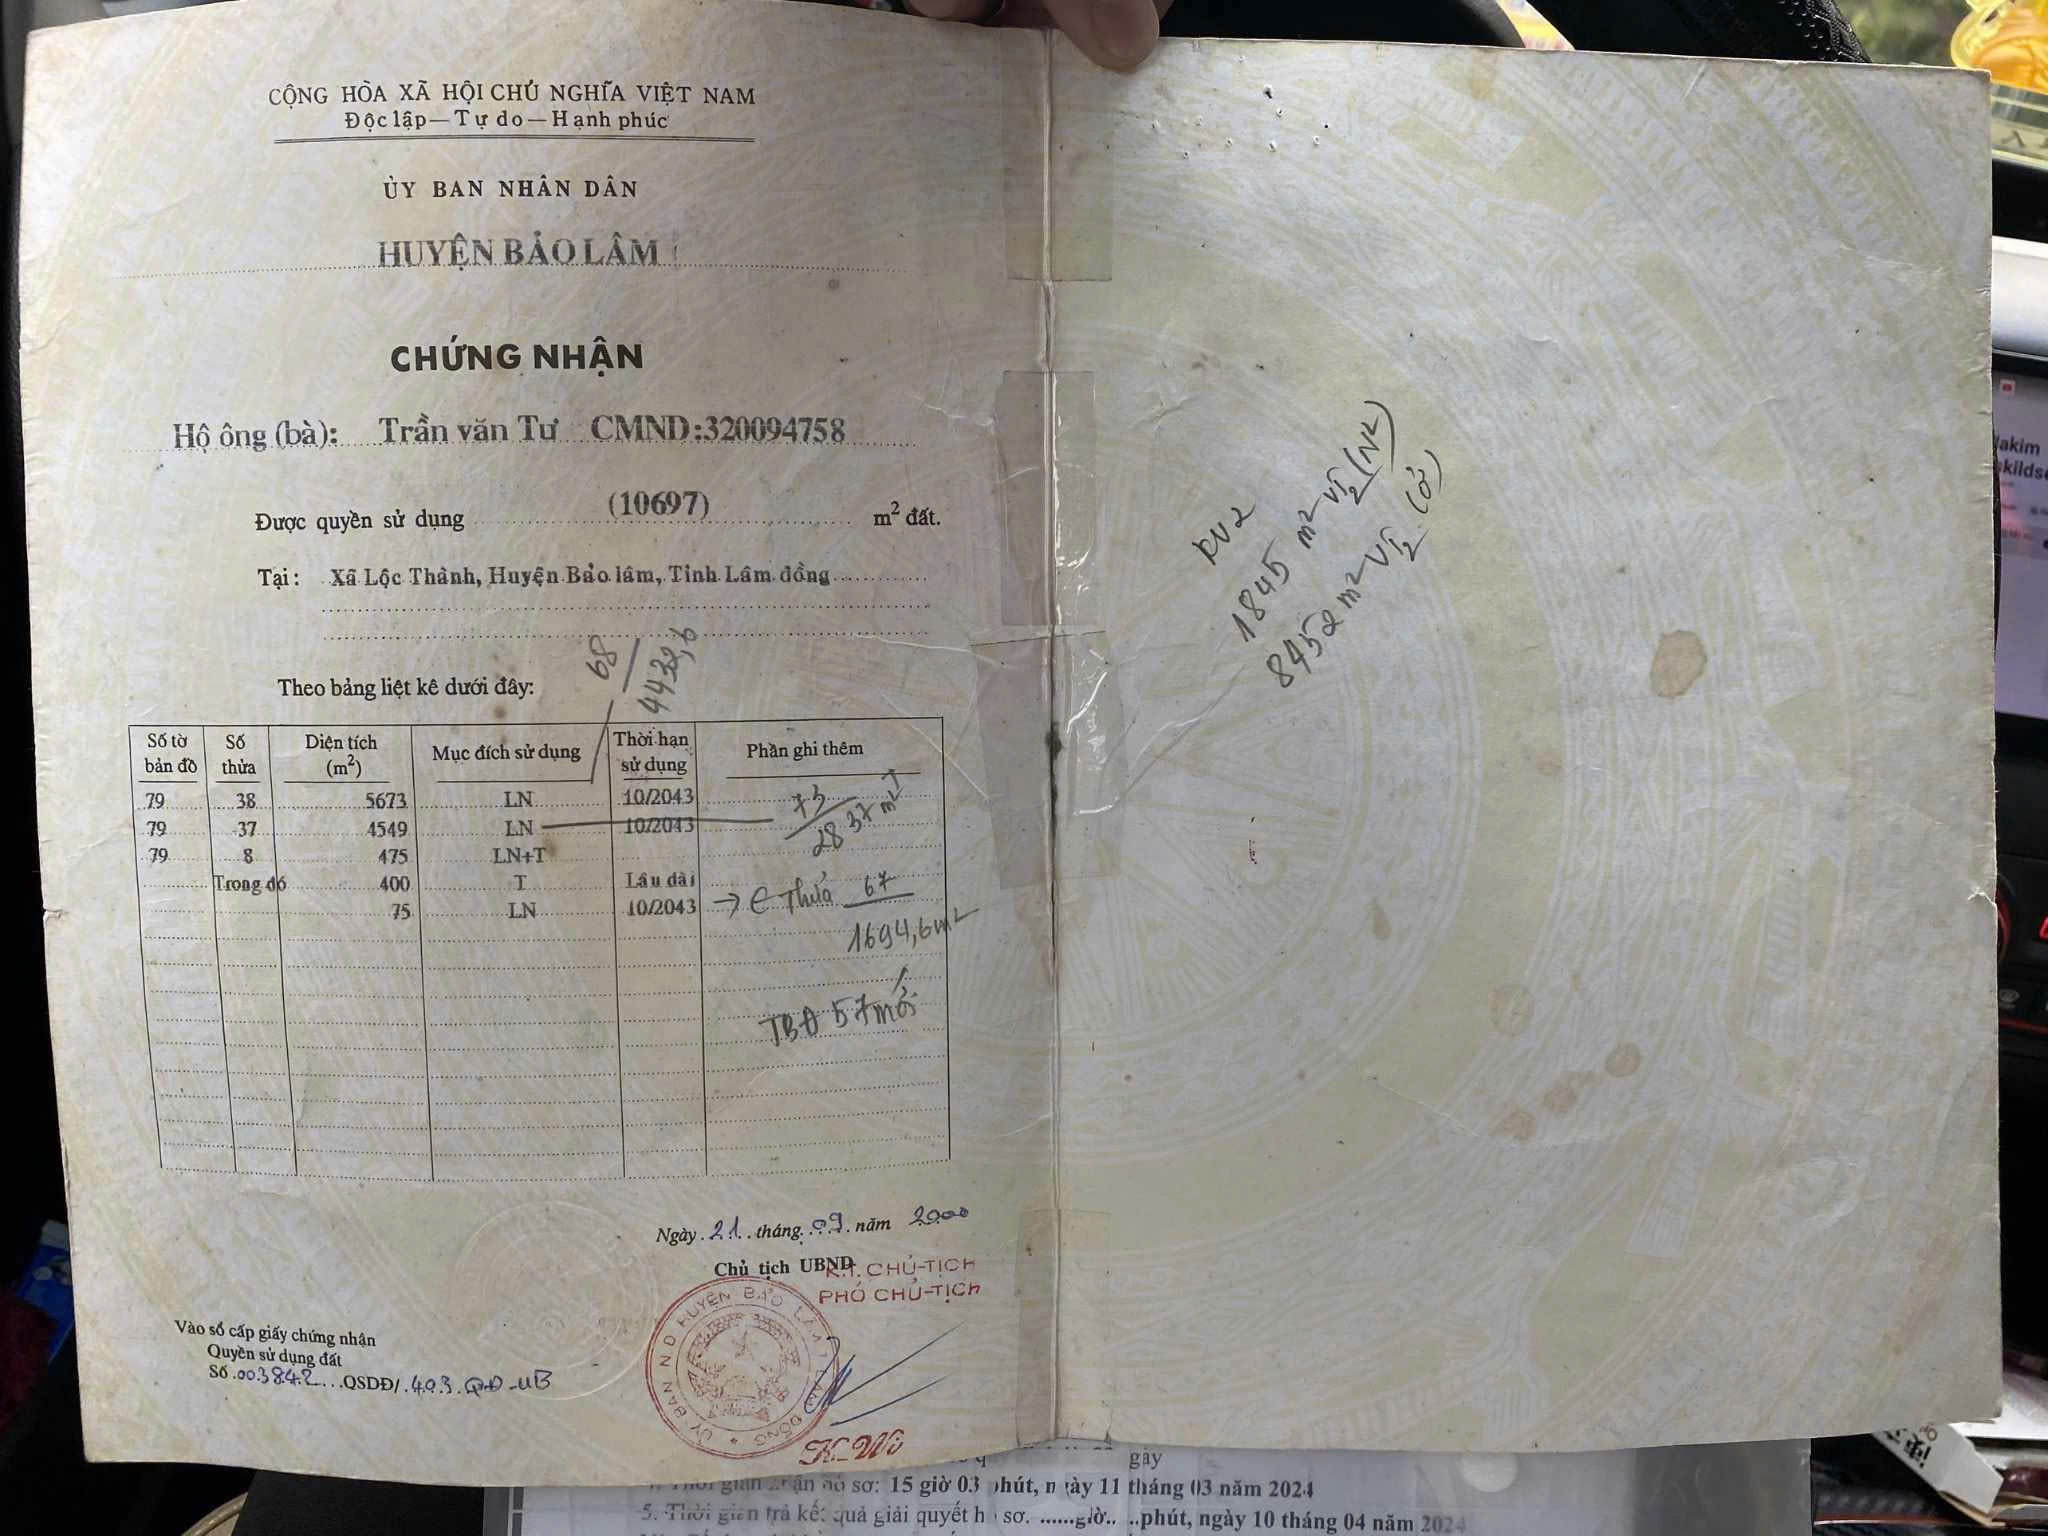 CỘNG HÒA XÃ HỘI CHỦ NGHĨA VIỆT NAM
Độc lập—Tự do—Hạnh phúc
ỦY BAN NHÂN DÂN
HUYỆN BẢO LÂM
CHỨNG NHẬN
Hộ ông (bà): Trần văn Tư CMND:320094758
Được quyền sử dụng (10697) m² đất.
Tại: Xã Lộc Thành, Huyện Bảo lâm, Tỉnh Lâm đồng
68
4432,6
Theo bảng liệt kê dưới đây:
Số tờ bản đồ Số thửa Diện tích (m²) Mục đích sử dụng Thời hạn sử dụng Phần ghi thêm
79 38 5673 LN 10/2043
79 37 4549 LN 10/2043
79 8 475 LN+T
Trong đó 400 T Lâu dài
75 LN 10/2043
73
2837 m²
→ Thửa 67
1694,6m²
TBĐ 57 mới
Ngày 21 tháng 09 năm 2000
Chủ tịch UBND
K.T. CHỦ-TỊCH
PHÓ CHỦ-TỊCH
ỦY BAN ND HUYỆN BẢO LÂM T LÂM ĐỒNG
Vào sổ cấp giấy chứng nhận
Quyền sử dụng đất
Số 003842 QSDĐ/ 403 QĐ-UB
KV2
1845 m² VT2 (N2)
8452 m² VT2 (ở)
15 giờ 03 phút, ngày 11 tháng 03 năm 2024
5. Thời gian trả kết quả giải quyết hồ sơ: ......giờ.. ..phút, ngày 10 tháng 04 năm 2024